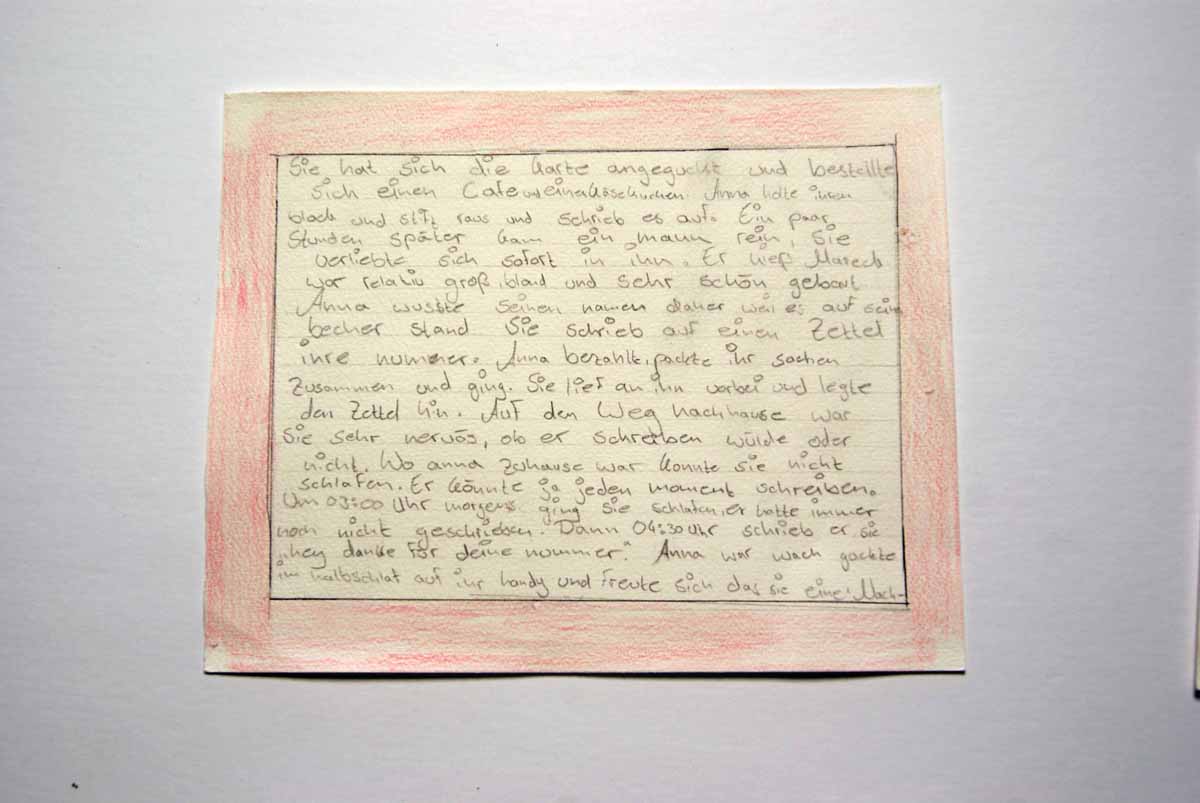 Sie hat sich die Karte angeguckt und bestellte
sich einen Cafe und einen Käsekuchen. Anna holte ihren
block und stift raus und schrieb es auf. Ein paar
Stunden später kam ein mann rein, Sie
verliebte sich sofort in ihn. Er hieß Mareck
war relativ groß, bland und sehr schön gebaut
Anna wusste seinen namen daher weil es auf sein
becher stand Sie schrieb auf einen Zettel
ihre nummer. Anna bezahlte, packte ihr sachen
Zusammen und ging. Sie lief an ihn vorbei und legte
den Zettel hin. Auf den Weg nachhause war
Sie sehr nervös, ob er schreiben würde oder
nicht. Wo anna Zuhause war konnte sie nicht
schlafen. Er könnte ja jeden moment schreiben.
Um 03:00 Uhr morgens ging sie schlafen, er hatte immer
noch nicht geschrieben. Dann 04:30 Uhr schrieb er sie
„hey danke für deine nummer." Anna war wach guckte
im halbschlaf auf ihr handy und freute sich das sie eine Nach-